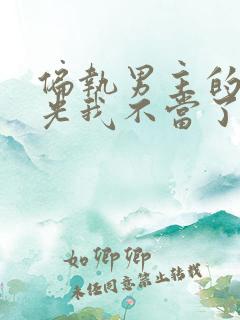 偏执男主的
光我不当了
如卿卿
未经同意禁止转载